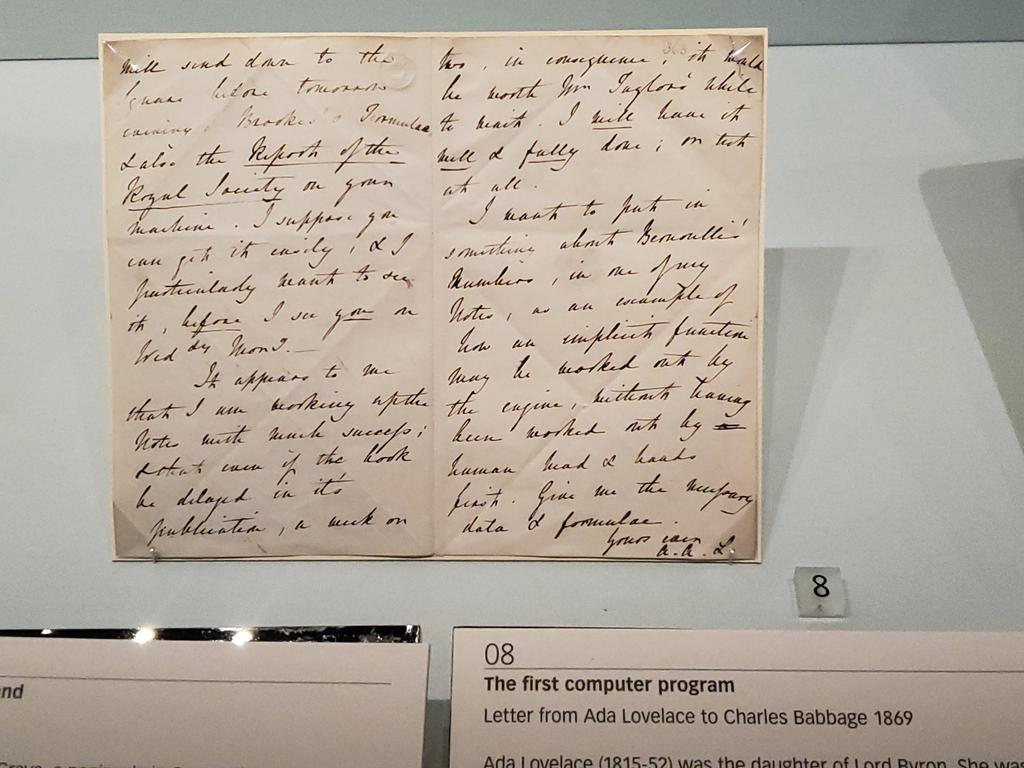 will send down to the
Square before tomorrow
evening, Brooke's Formulae,
& also the Report of the
Royal Society on your
machine. I suppose you
can get it easily, & I
particularly want to see
it, before I see you on
Wed dy Morng.—
It appears to me
that I am working up the
Notes with much success;
& that even if the book
be delayed in it's
publication, a week or
two, in consequence, it would
be worth Mr Taylor's while
to wait. I will have it
well & fully done; or not
at all.
I want to put in
something about Bernoulli's
Numbers, in one of my
Notes, as an example of
how an implicit function
may be worked out by
the engine, without having
been worked out by
human head & hands
first. Give me the necessary
data & formulae.
Yours ever
A. A. L
8
nd
08
The first computer program
Letter from Ada Lovelace to Charles Babbage 1869
Ada Lovelace (1815-52) was the daughter of Lord Byron. She was